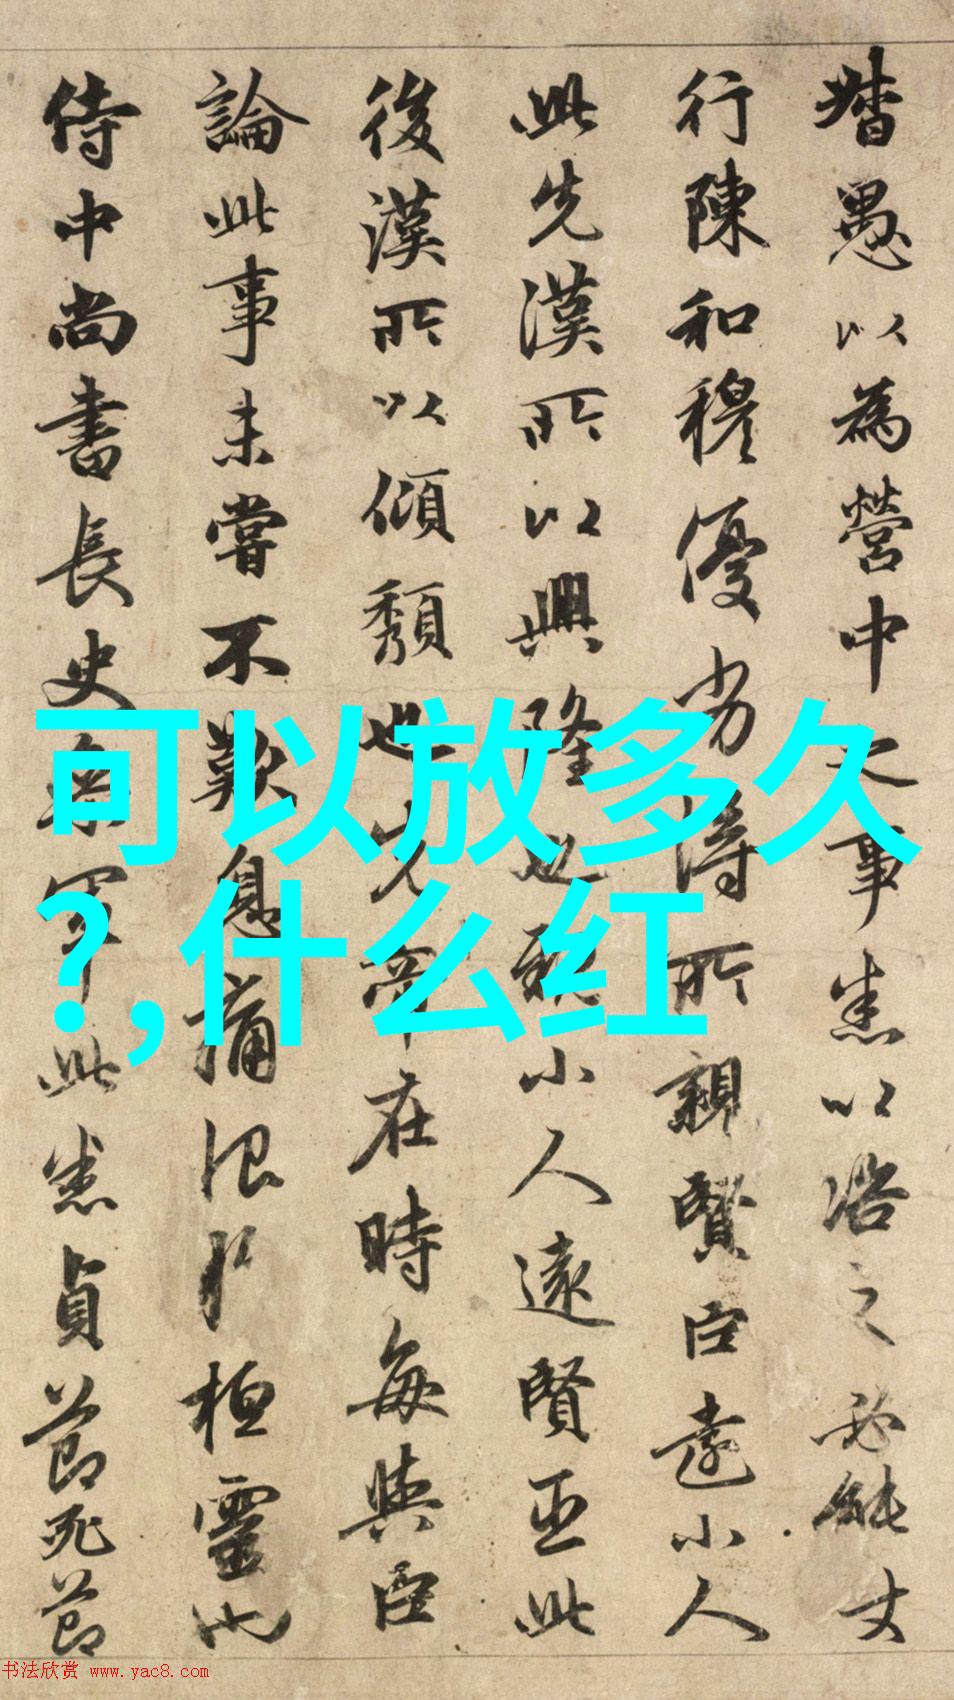 揩愚以為營中之事悉以咨之必能丈
行陳和穆優劣得所親賢臣遠小人
此先漢所以興隆也親小人遠賢臣此
後漢所以傾頹也先帝在時每與臣
論此事未嘗不歎息痛恨於桓靈也
侍中尚書長史參軍此悉貞節死節
可以放多久
?,什么红
书法欣赏 www.yac8.com